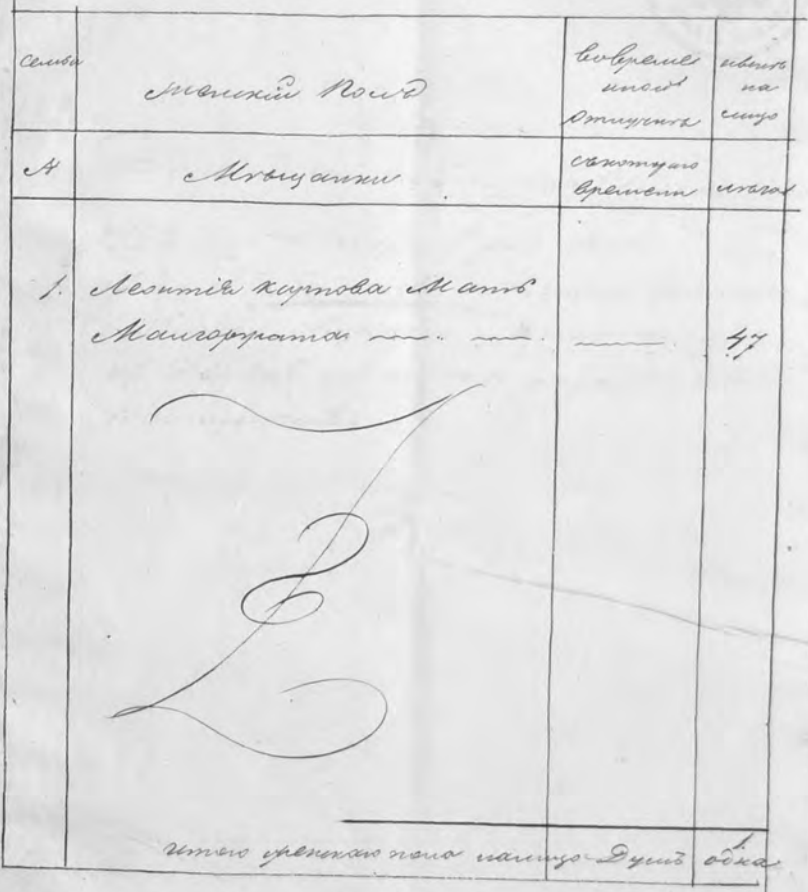 семьи
женский Полъ
вовремен
ной
отлучкѣ
ныне
на
лицо
№
Мѣщанки
съкотораго
времени
лѣта
1. Леонтія карпова Мать
Малгоржата
47
1
итого женскаго пола налицо Душъ одна